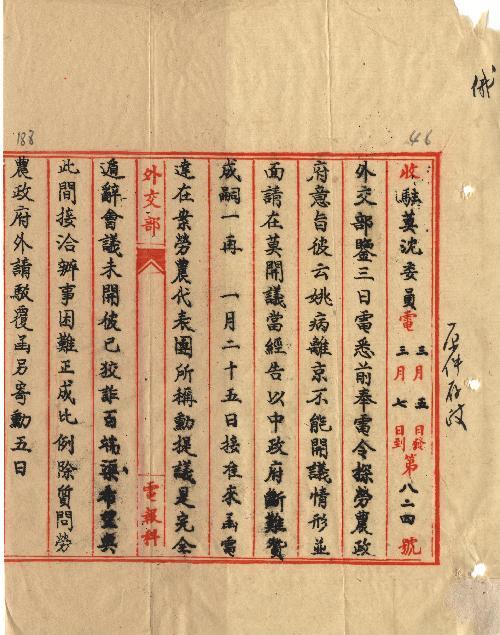 俄
46
188
原件存政
收駐莫沈委員電 三月五日發 三月七日到 第八二四號
外交部鑒三日電悉前奉電令探勞農政
府意旨彼云姚病離京不能開議情形並
面請在莫開議當經告以中政府斷難贊
成嗣一再 一月二十五日接准來函電
達在案勞農代表團所稱動提議是完全
外交部 電報科
遁辭會議未開彼已狡詐百端藥希望與
此間接洽辦事困難正成比例除質問勞
農政府外請駁覆函另寄勳五日